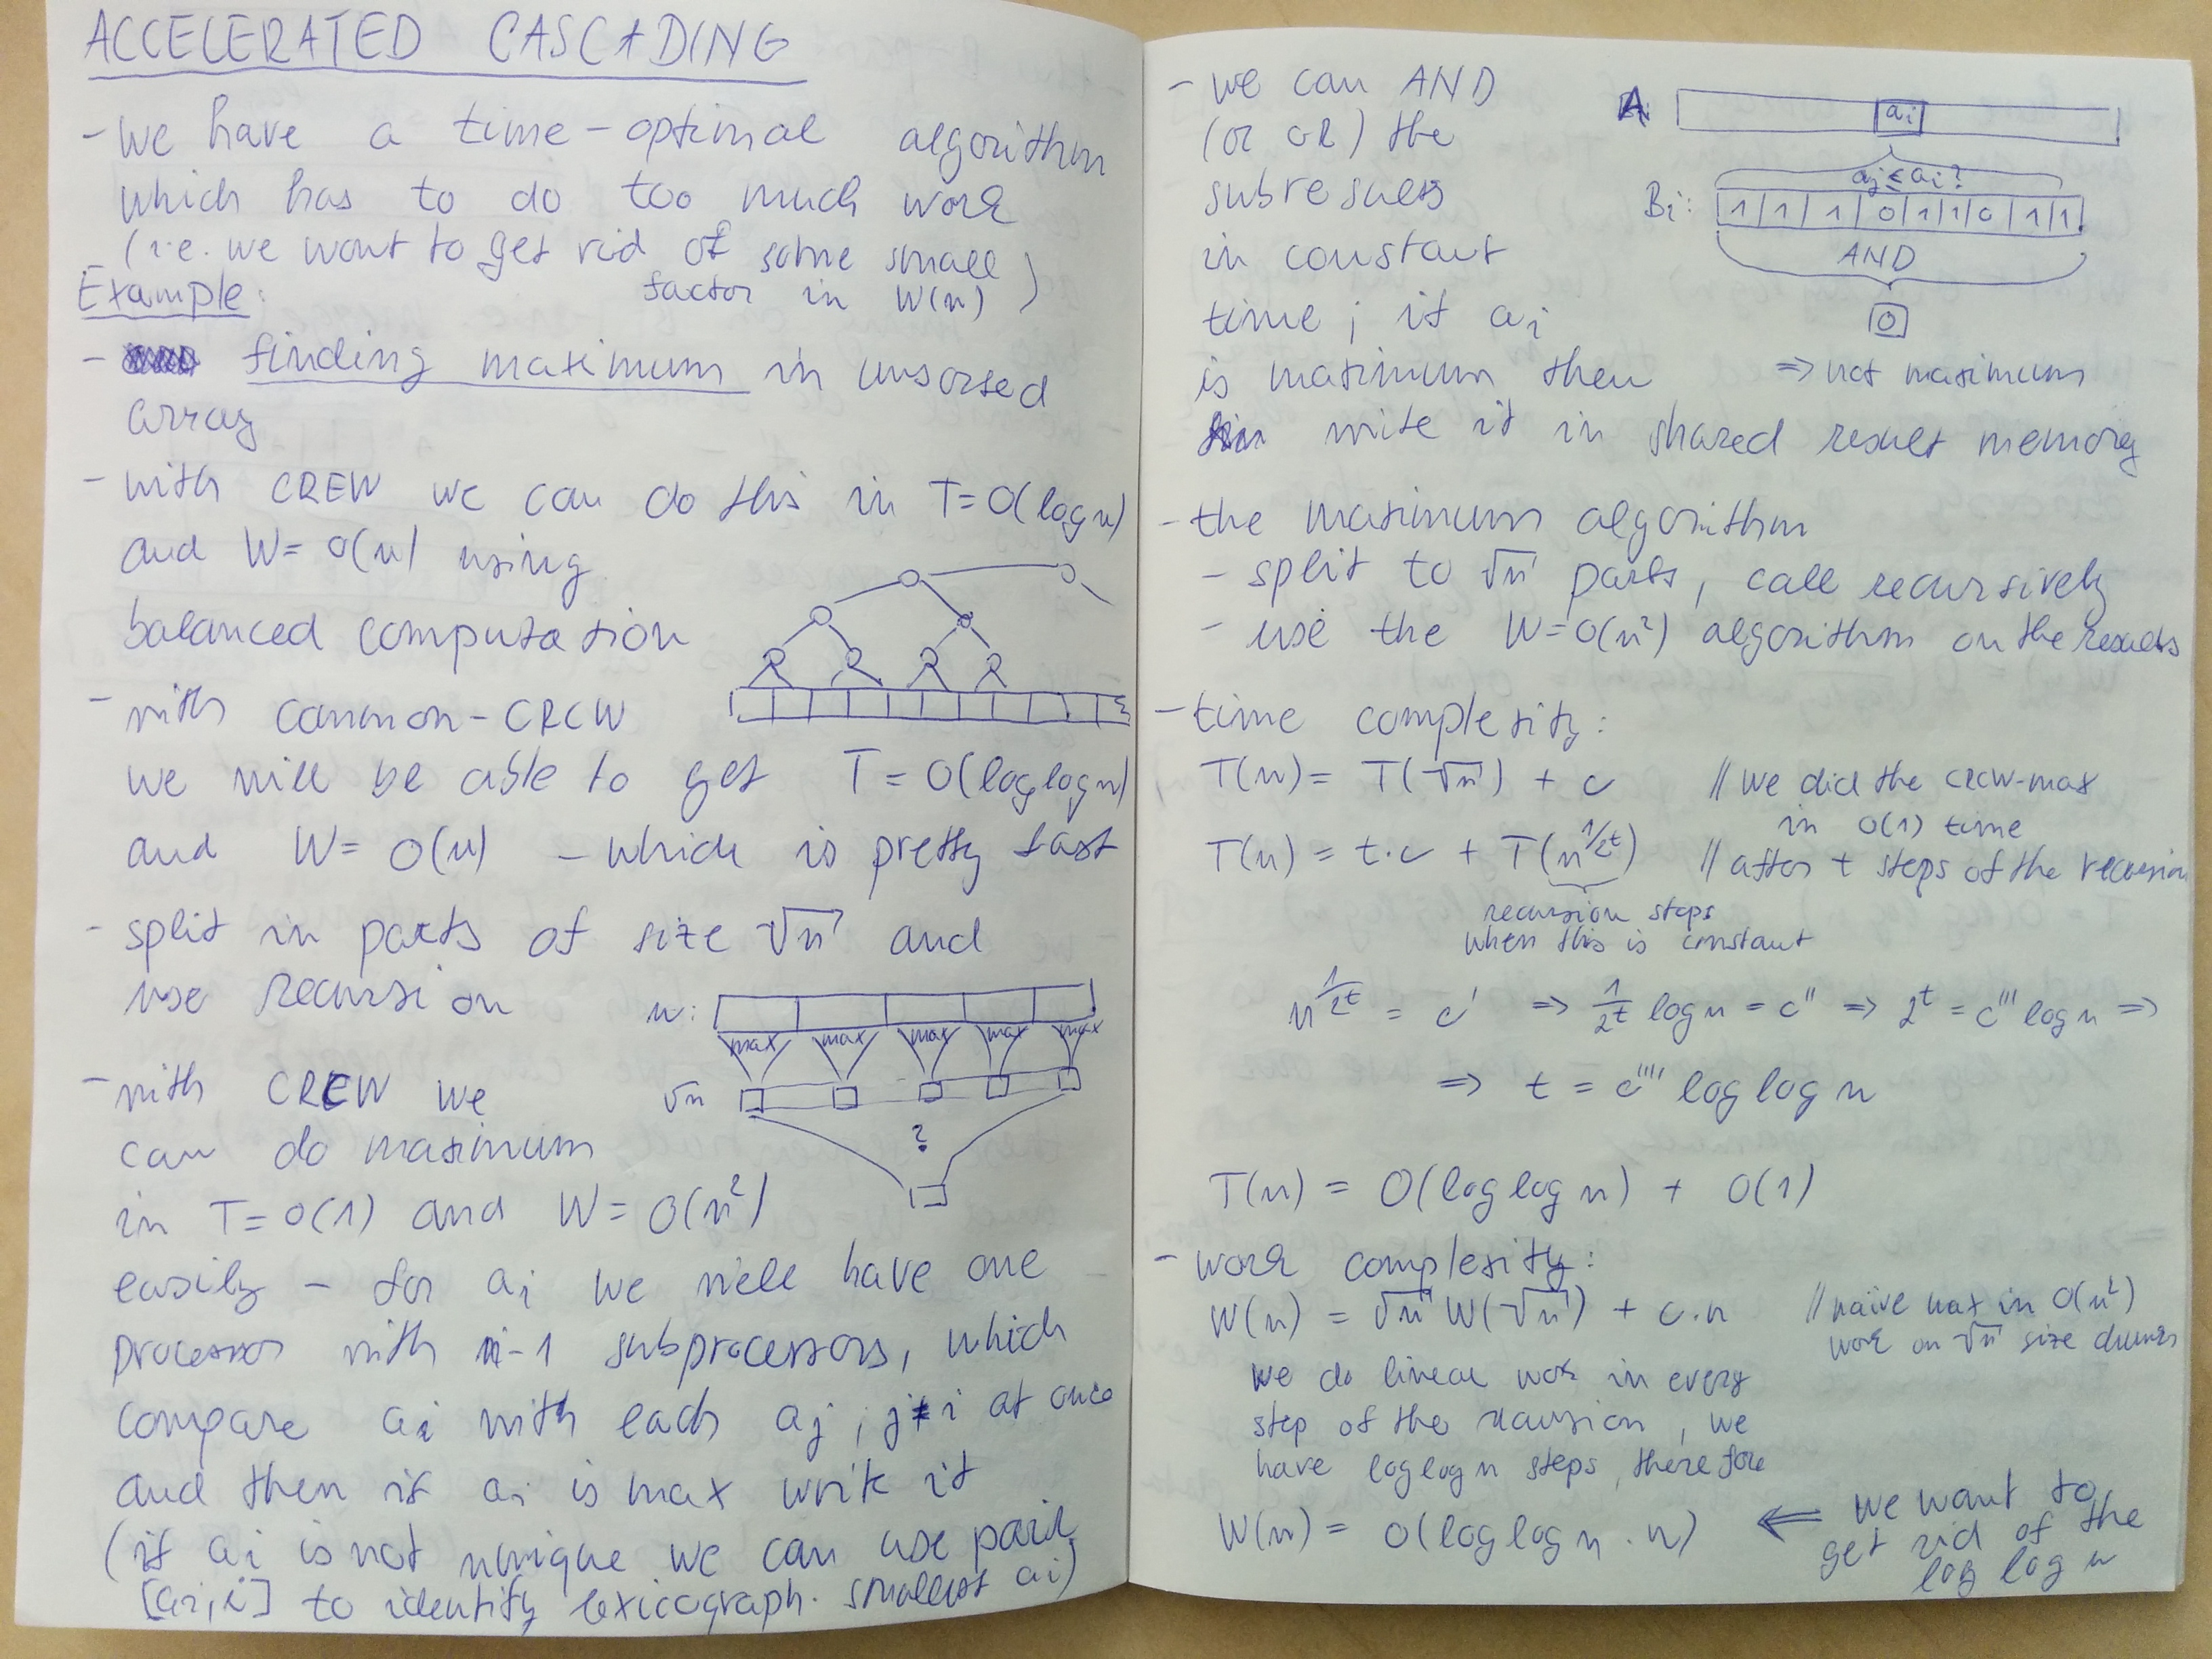 ACCELERATED CASCADING
- we have a time-optimal algorithm
which has to do too much work
(i.e. we want to get rid of some small
factor in W(n))
Example:
- finding maximum in unsorted
array
- with CREW we can do this in T=O(log n)
and W=O(n) using
balanced computation
- with common-CRCW
we will be able to get T=O(log log n)
and W=O(n) - which is pretty fast
- split in parts of size √n and
use recursion
n:
max max max max max
√n
?
- with CRCW we
can do maximum
in T=O(1) and W=O(n²)
easily - for ai we will have one
processor with n-1 subprocessors, which
compare ai with each aj, j≠i at once
and then if ai is max write it
(if ai is not unique we can use pair
[ai,i] to identify lexicograph. smallest ai)
- we can AND
(or OR) the
subresults
in constant
time; if ai
is maximum then
write it in shared result memory
A
ai
aj ≤ ai?
Bi: 1 1 1 0 1 1 0 1 1
AND
0
=> not maximum
- the maximum algorithm
- split to √n parts, call recursively
- use the W=O(n²) algorithm on the results
- time complexity:
T(n) = T(√n) + c // we did the CRCW-max
in O(1) time
T(n) = t.c + T(n^{1/2^t}) // after t steps of the recursion
recursion stops
when this is constant
n^{1/2^t} = c' => 1/2^t log n = c'' => 2^t = c''' log n =>
=> t = c'''' log log n
T(n) = O(log log n) + O(1)
- work complexity:
W(n) = √n W(√n) + c.n // naive max in O(n²)
work on √n size
we do linear work in every
step of the recursion, we
have log log n steps, therefore
W(n) = O(log log n . n) <= we want to
get rid of the
log log n